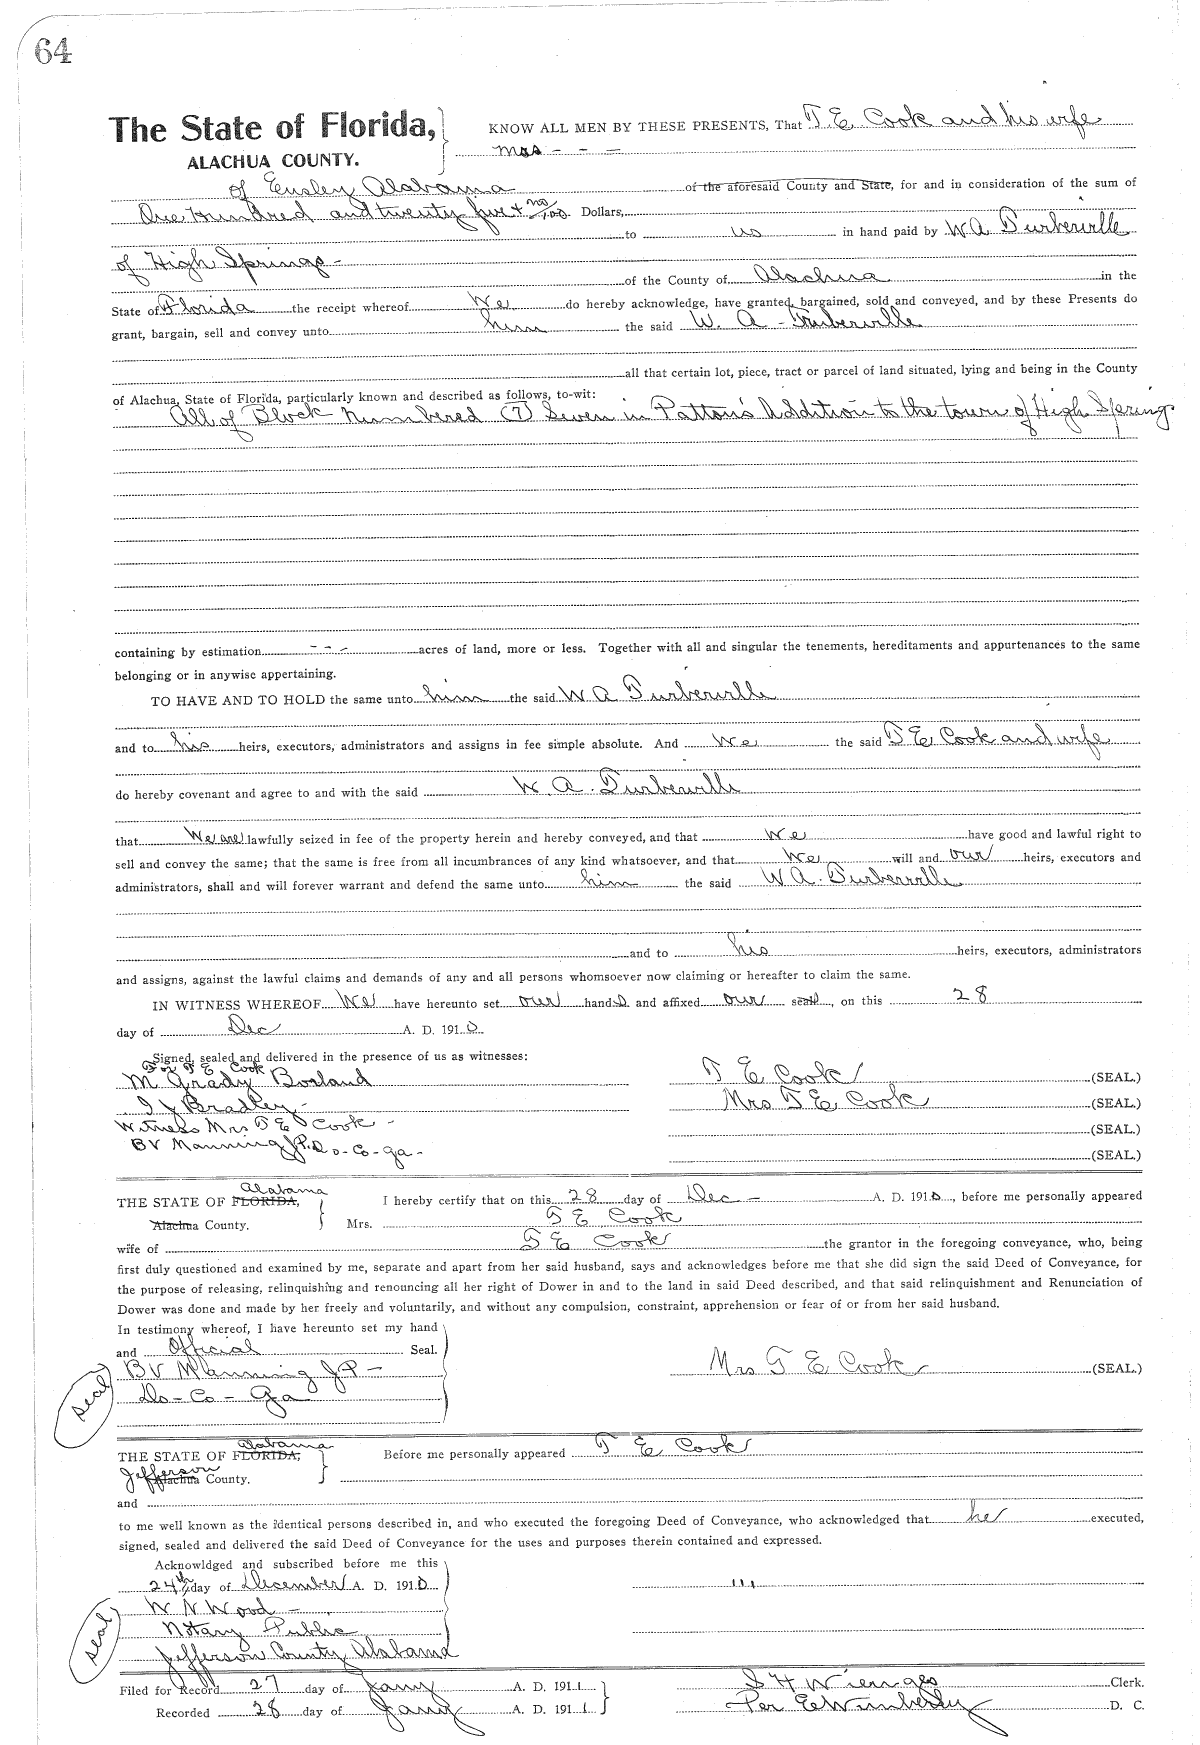 64
The State of Florida, KNOW ALL MEN BY THESE PRESENTS, That T E Cook and his wife
ALACHUA COUNTY. Mrs - - -
of Ensley Alabama of the aforesaid County and State, for and in consideration of the sum of
One hundred and twenty five & no/100 Dollars,
to us in hand paid by W A Turberville
of High Springs -
of the County of Alachua in the
State of Florida the receipt whereof We do hereby acknowledge, have granted, bargained, sold and conveyed, and by these Presents do
grant, bargain, sell and convey unto him the said W. A - Turberville
all that certain lot, piece, tract or parcel of land situated, lying and being in the County
of Alachua, State of Florida, particularly known and described as follows, to-wit:
All of Block Numbered (7) Seven in Patton's Addition to the town of High Springs
containing by estimation - - - acres of land, more or less. Together with all and singular the tenements, hereditaments and appurtenances to the same
belonging or in anywise appertaining.
TO HAVE AND TO HOLD the same unto him the said W A Turberville
and to his heirs, executors, administrators and assigns in fee simple absolute. And We the said T E Cook and wife
do hereby covenant and agree to and with the said W. A. Turberville
that We are lawfully seized in fee of the property herein and hereby conveyed, and that We have good and lawful right to
sell and convey the same; that the same is free from all incumbrances of any kind whatsoever, and that We will and our heirs, executors and
administrators, shall and will forever warrant and defend the same unto him the said W A. Turberville
and to his heirs, executors, administrators
and assigns, against the lawful claims and demands of any and all persons whomsoever now claiming or hereafter to claim the same.
IN WITNESS WHEREOF We have hereunto set our hands and affixed our seal, on this 28
day of Dec A. D. 1910
Signed, sealed and delivered in the presence of us as witnesses:
For T E Cook
M Grady Borland T E Cook (SEAL.)
I Y Bradley - Mrs T E Cook (SEAL.)
Witness Mrs T E Cook - (SEAL.)
B V Manning J.P. Do-Co-Ga- (SEAL.)
Alabama
THE STATE OF FLORIDA, I hereby certify that on this 28 day of Dec - A. D. 1910, before me personally appeared
Alachua County. Mrs. T E Cook
wife of T E Cook the grantor in the foregoing conveyance, who, being
first duly questioned and examined by me, separate and apart from her said husband, says and acknowledges before me that she did sign the said Deed of Conveyance, for
the purpose of releasing, relinquishing and renouncing all her right of Dower in and to the land in said Deed described, and that said relinquishment and Renunciation of
Dower was done and made by her freely and voluntarily, and without any compulsion, constraint, apprehension or fear of or from her said husband.
In testimony whereof, I have hereunto set my hand
and Official Seal.
B V Manning J P - Mrs T E Cook (SEAL.)
seal Do-Co-Ga
Alabama
THE STATE OF FLORIDA, Before me personally appeared T E Cook
Jefferson
Alachua County.
and
to me well known as the identical persons described in, and who executed the foregoing Deed of Conveyance, who acknowledged that he executed,
signed, sealed and delivered the said Deed of Conveyance for the uses and purposes therein contained and expressed.
Acknowldged and subscribed before me this
24th day of December A. D. 1910
W N Wood -
seal Notary Public
Jefferson County Alabama
Filed for Record 27 day of Jany A. D. 1911 S H Wienges Clerk.
Recorded 28 day of Jany A. D. 1911 Per E Wimberly D. C.